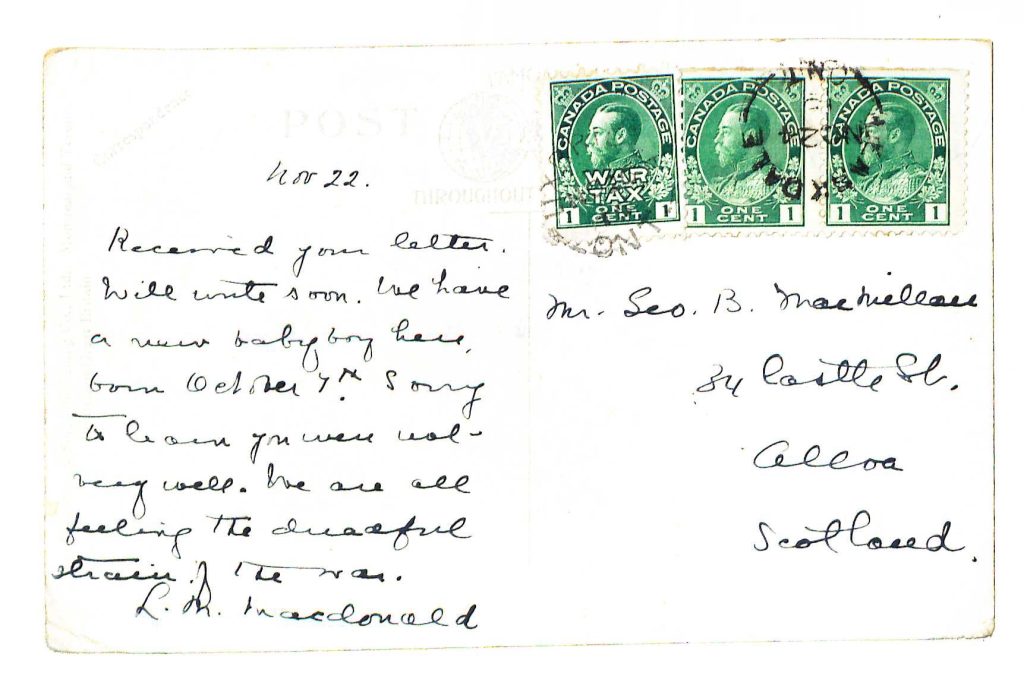 POST
THROUGHOUT
CANADA POSTAGE
WAR
TAX
1 ONE CENT 1
CANADA POSTAGE
1 ONE CENT 1
CANADA POSTAGE
1 ONE CENT 1
DALE
ONT
24
Nov 22.
Received your letter.
Will write soon. We have
a new baby boy here,
born October 7th. Sorry
to learn you were not
very well. We are all
feeling the dreadful
strain of the war.
L. M. Macdonald
Mr. Geo. B. MacMillan
34 Castle St.
Alloa
Scotland.